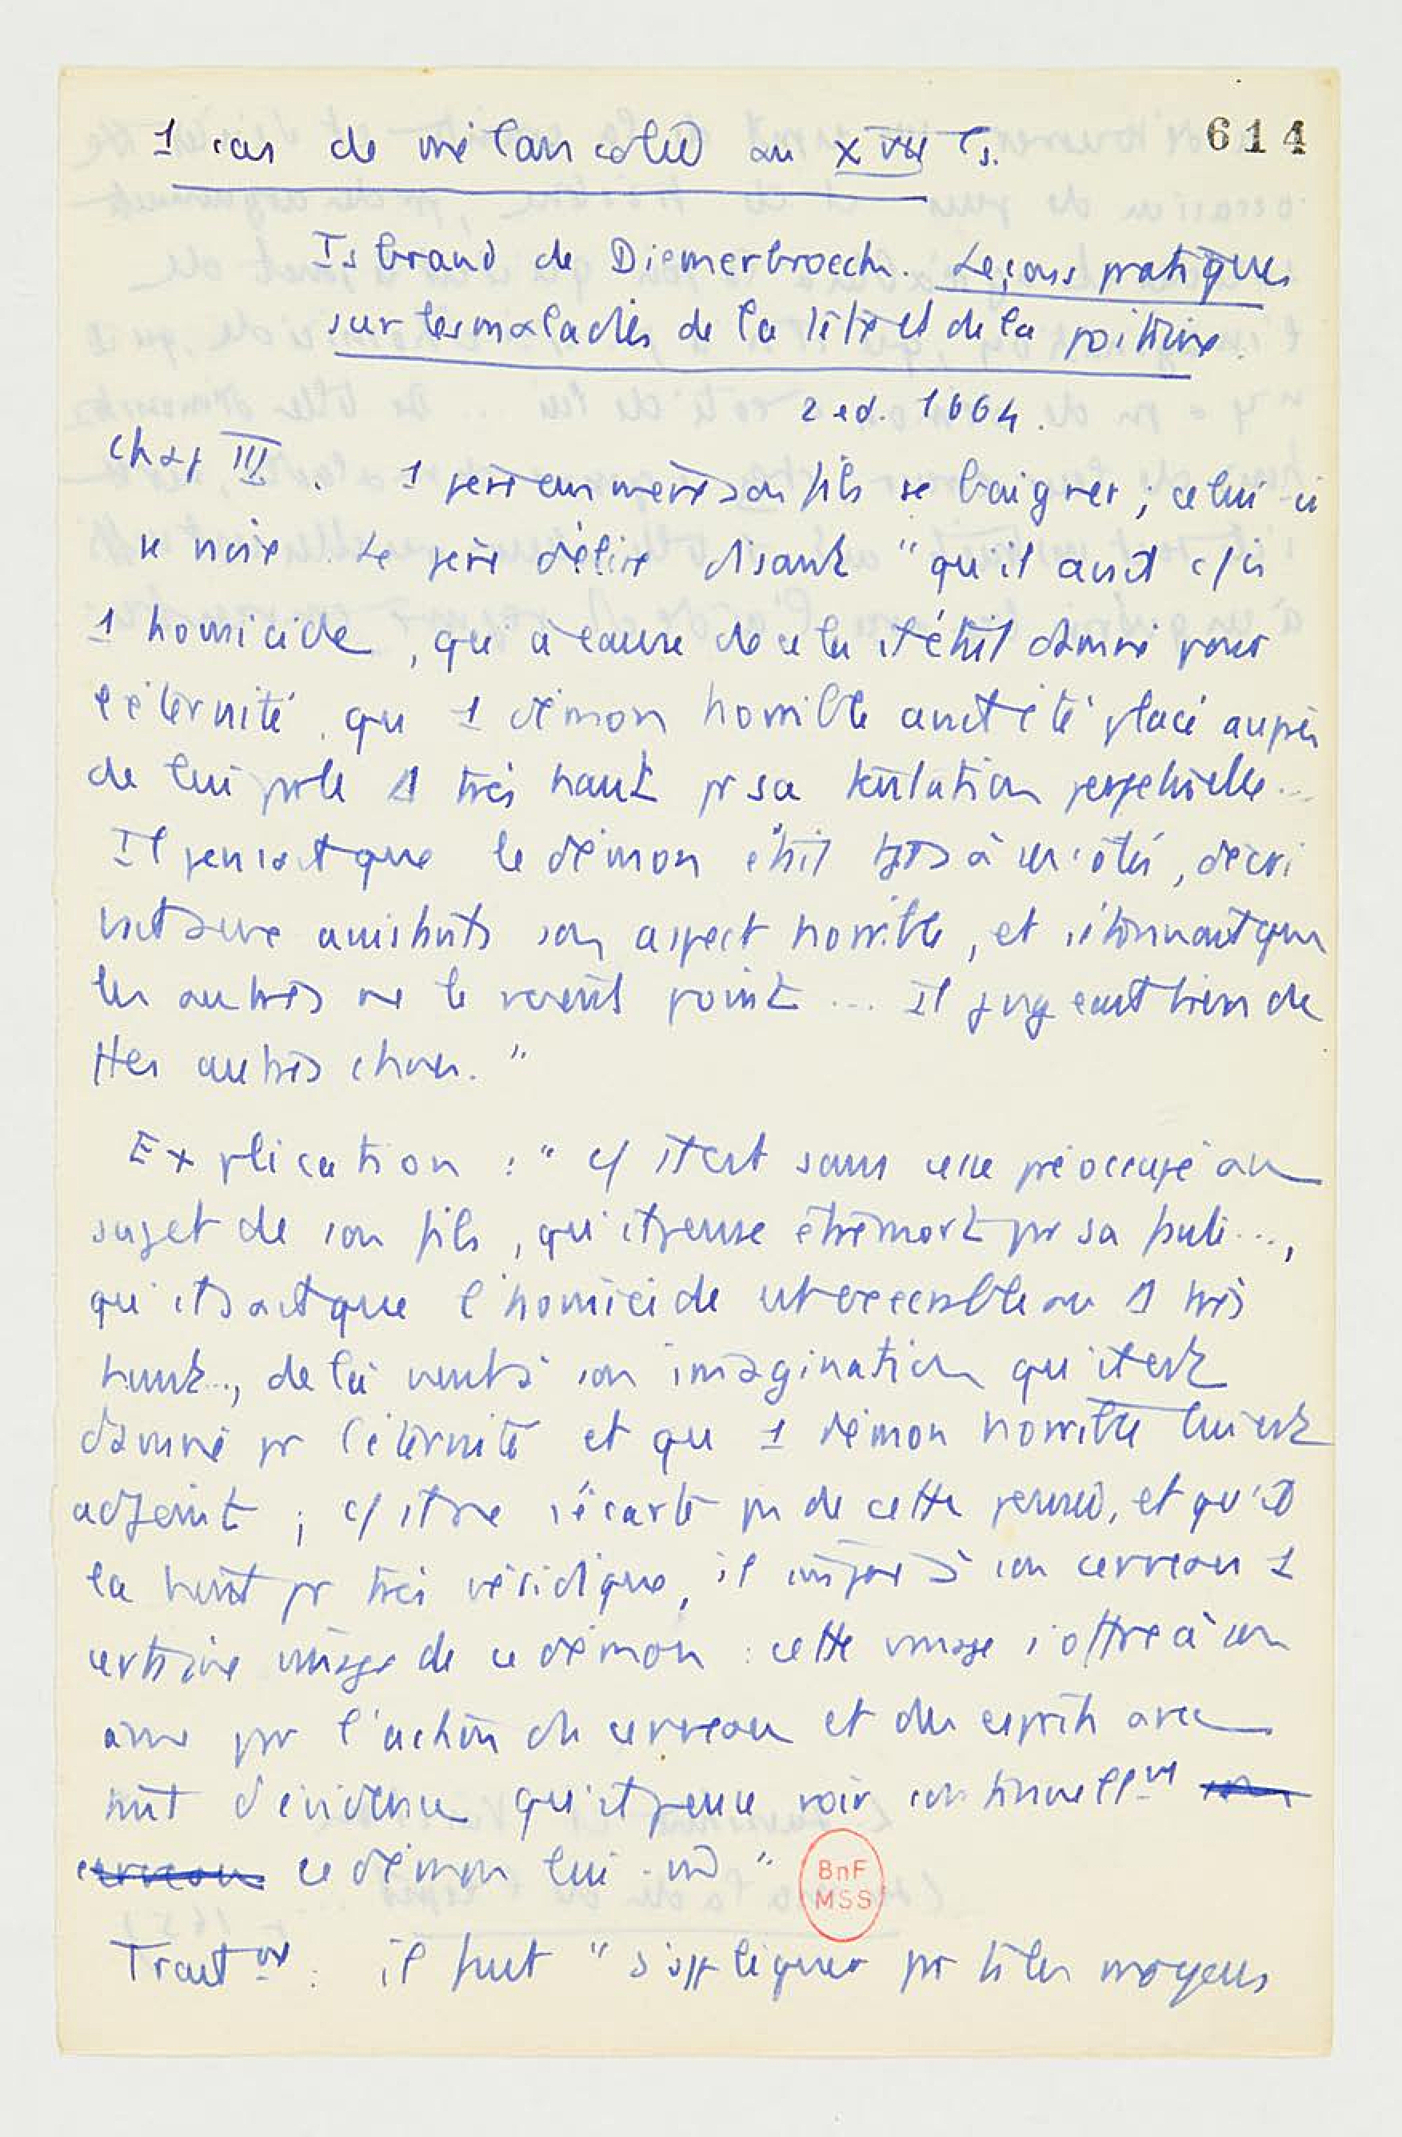 614
1 cas de mélancolie au XVII s.
Isbrand de Diemerbroeck. Leçons pratiques
sur les maladies de la tête et de la poitrine.
2 ed. 1664.
Chap III. 1 père emmène son fils se baigner ; celui-ci
se noie. Le père délire disant "qu'il avait
1 homicide, que à cause de cela il était damné pour
l'éternité, que 1 démon horrible avait été placé auprès
de lui par le très haut pr sa tentation perpétuelle...
Il pensait que le démon était à ses côtés, décri
vait aux assistants son aspect horrible, et s'étonnait que
les autres ne le voient point ... Il jugeait bien de
ttes autres choses."
Explication : " c/ il est sans cesse préoccupé au
sujet de son fils, qu'il pense être mort par sa faute...,
qu'il sait que l'homicide est exécrable au très
haut..., de là vient à son imagination qu'il est
damné pr l'éternité et que 1 démon horrible lui est
adjoint ; c/ il ne s'écarte pas de cette pensée, et qu'il
la tient pr très véridique, il à son cerveau 1
certaine image de ce démon : cette image s'offre à son
âme par l'action du cerveau et des esprits avec
tant d'évidence qu'il pense voir continuellmt son
cerveau ce démon lui-m "
BnF
MSS
Traitmt : il faut "s'appliquer par ts les moyens